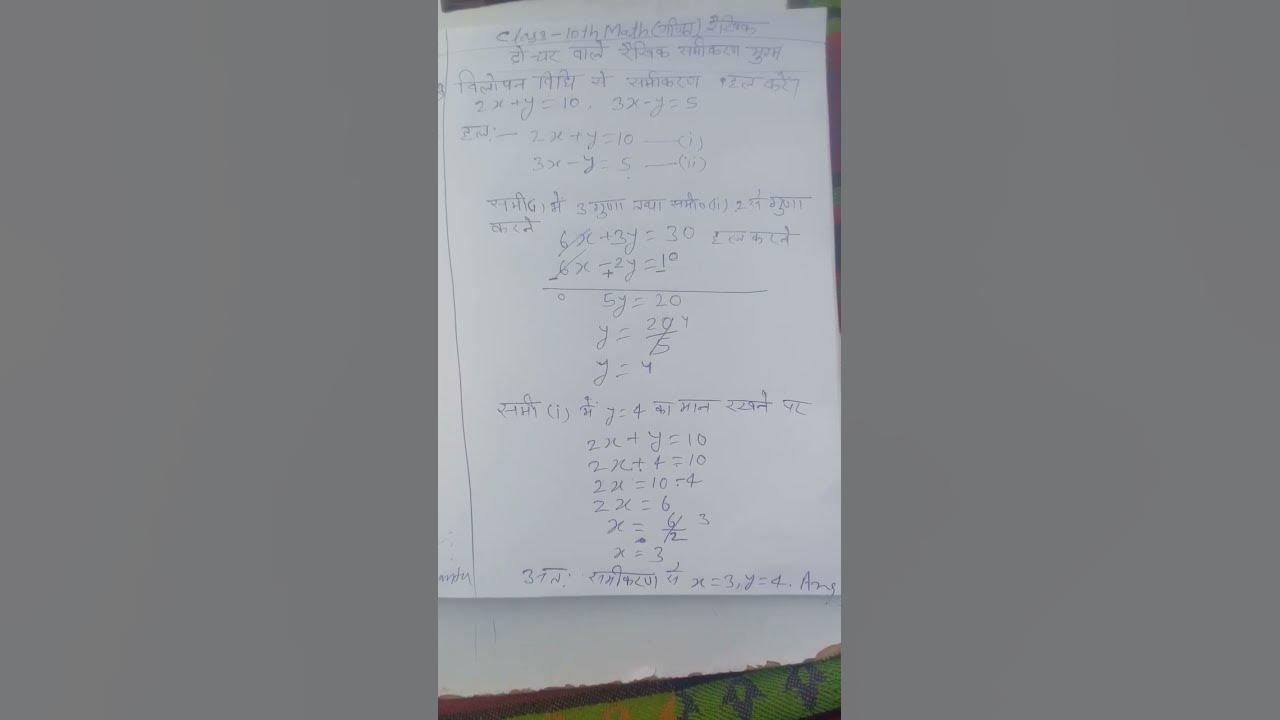 Class-10th Math (गणित) रैखिक
दो चर वाले रैखिक समीकरण युग्म
विलोपन विधि से समीकरण हल करें।
2x+y=10, 3x-y=5
हल:— 2x+y=10 —(i)
3x-y=5 —(ii)
समी(i) में 3 गुणा तथा समी०(i) 2 से गुणा
करने
6x+3y=30 हल करने
6x-2y=10
- + -
0 5y=20
y=20/5 4
y=4
समी (i) में y=4 का मान रखने पर
2x+y=10
2x+4=10
2x=10-4
2x=6
x=6/2 3
x=3
अत: समीकरण से x=3, y=4. Ans